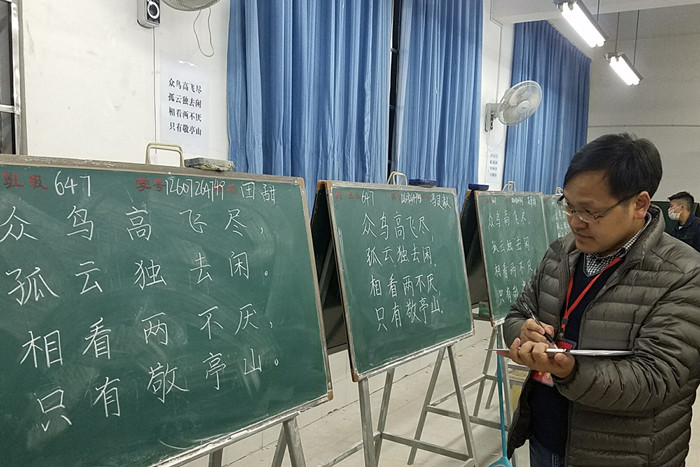 众鸟高飞尽
孤云独去闲
相看两不厌
只有敬亭山
班级 647 田甜
众鸟高飞尽，
孤云独去闲。
相看两不厌，
只有敬亭山。
647
众鸟高飞尽，
孤云独去闲。
相看两不厌，
只有敬亭山。
众鸟高飞尽
孤云独去闲
相看两不厌
只有敬亭山